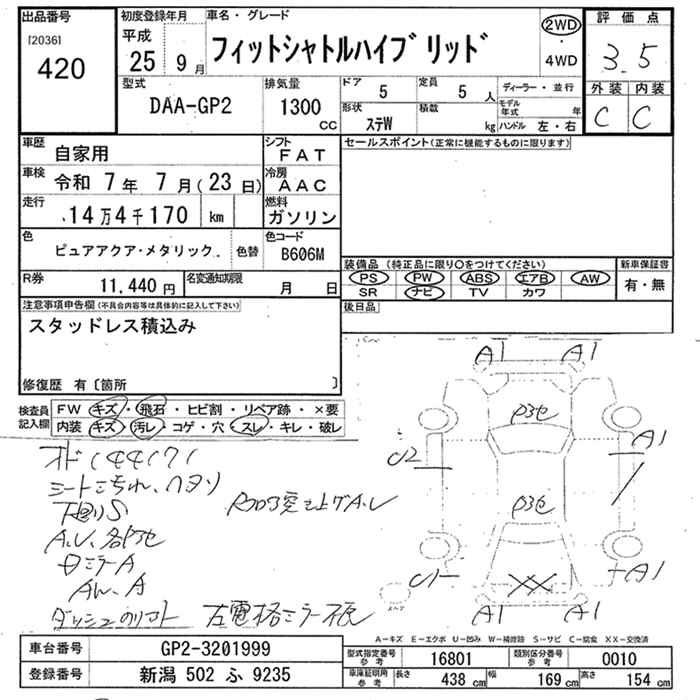 出品番号
[2036]
420
初度登録年月
平成
25年9月
車名・グレード
フィットシャトルハイブリッド
2WD
・
4WD
評価点
3.5
外装 内装
C C
型式
DAA-GP2
排気量
1300
CC
ドア 5
定員 5人
形状 ステW
積載 kg
ディーラー・並行
モデル年式 年
ハンドル 左・右
車歴 自家用
シフト FAT
車検 令和 7年 7月(23日)
冷房 AAC
走行 14万4千170 km
燃料 ガソリン
色 ピュアアクア・メタリック 色替
色コード B606M
R券 11,440円
名変通知期限 月 日
セールスポイント(正常に機能するものに限ります)
装備品(特純正品に限り○をつけてください)
PS PW ABS エアB AW
SR ナビ TV カワ
新車保証書
有・無
後日品
注意事項申告欄(不具合内容等は具体的に記入して下さい)
スタッドレス積込み
修復歴 有〔箇所 〕
検査員記入欄
FW キズ・飛石・ヒビ割・リペア跡・×要
内装 キズ・汚レ・コゲ・穴・スレ・キレ・破レ
オド144171
シートこすれ、ヘタリ
下回りS
A.U、各所
ミラーA
A
ダッシュ
左電格ミラー
突上げA.U
A1 A1
U2
A1
U1
A1
A1 A1
A-キズ E-エクボ U-凹み W-補修跡 S-サビ C-腐食 XX-交換済
車台番号 GP2-3201999
登録番号 新潟 502 ふ 9235
型式指定番号参考 16801
類別区分番号参考 0010
車庫証明用参考 長さ 438cm 幅 169cm 高さ 154cm